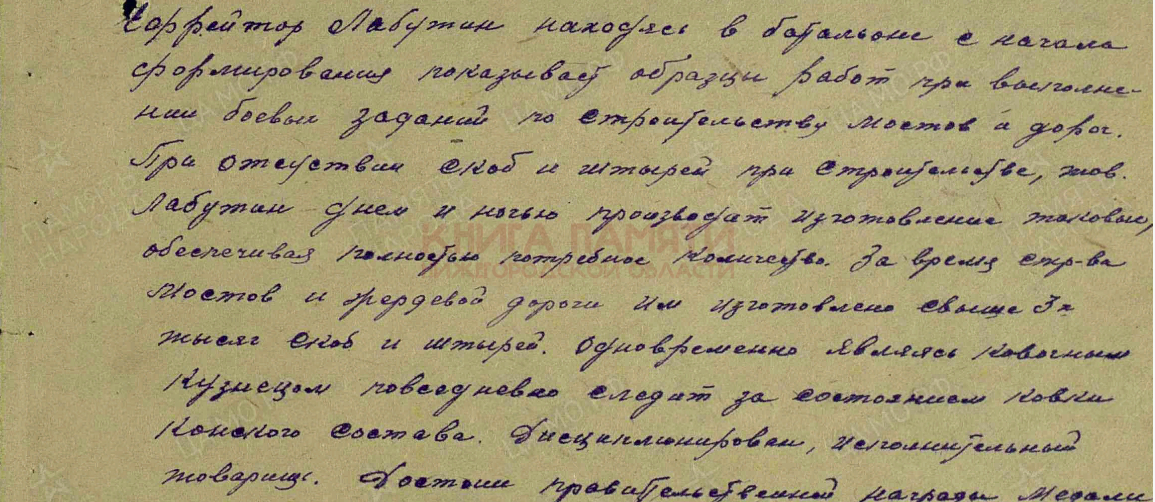 Ефрейтор Лабутин находясь в батальоне с начала
формирования показывает образцы работ при выполне-
нии боевых заданий по строительству мостов и дорог.
При отсутствии скоб и штырей при строительстве, тов.
Лабутин днем и ночью производит изготовление таковых,
обеспечивая полностью потребное количество. За время стр-ва
мостов и жердевой дороги им изготовлено свыше 3х
тысяч скоб и штырей. Одновременно являясь ковочным
кузнецом повседневно следит за состоянием ковки
конского состава. Дисциплинирован, исполнительный
товарищ. Достоин правительственной награды медали
КНИГА ПАМЯТИ
НИЖЕГОРОДСКОЙ ОБЛАСТИ
ПАМЯТЬ НАРОДА
ЦАМО.РФ